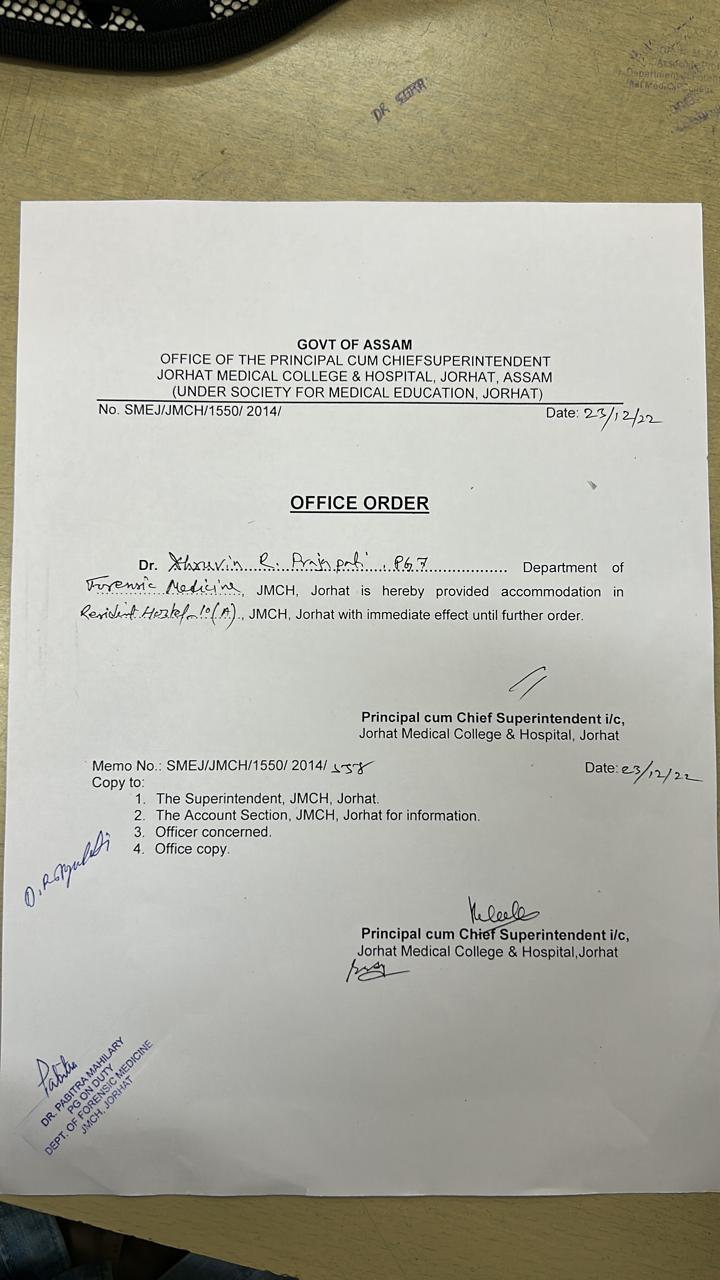 DR
GOVT OF ASSAM
OFFICE OF THE PRINCIPAL CUM CHIEFSUPERINTENDENT
JORHAT MEDICAL COLLEGE & HOSPITAL, JORHAT, ASSAM
(UNDER SOCIETY FOR MEDICAL EDUCATION, JORHAT)
No. SMEJ/JMCH/1550/ 2014/ Date: 23/12/22
OFFICE ORDER
Dr. Dhruvin R. Prajapati, PGT Department of
Forensic Medicine, JMCH, Jorhat is hereby provided accommodation in
Resident Hostel 10(A), JMCH, Jorhat with immediate effect until further order.
Principal cum Chief Superintendent i/c,
Jorhat Medical College & Hospital, Jorhat
Memo No.: SMEJ/JMCH/1550/ 2014/ 558 Date: 23/12/22
Copy to:
1. The Superintendent, JMCH, Jorhat.
2. The Account Section, JMCH, Jorhat for information.
3. Officer concerned.
4. Office copy.
Principal cum Chief Superintendent i/c,
Jorhat Medical College & Hospital,Jorhat
Pabitra
DR. PABITRA MAHILARY
PG ON DUTY
DEPT. OF FORENSIC MEDICINE
JMCH, JORHAT